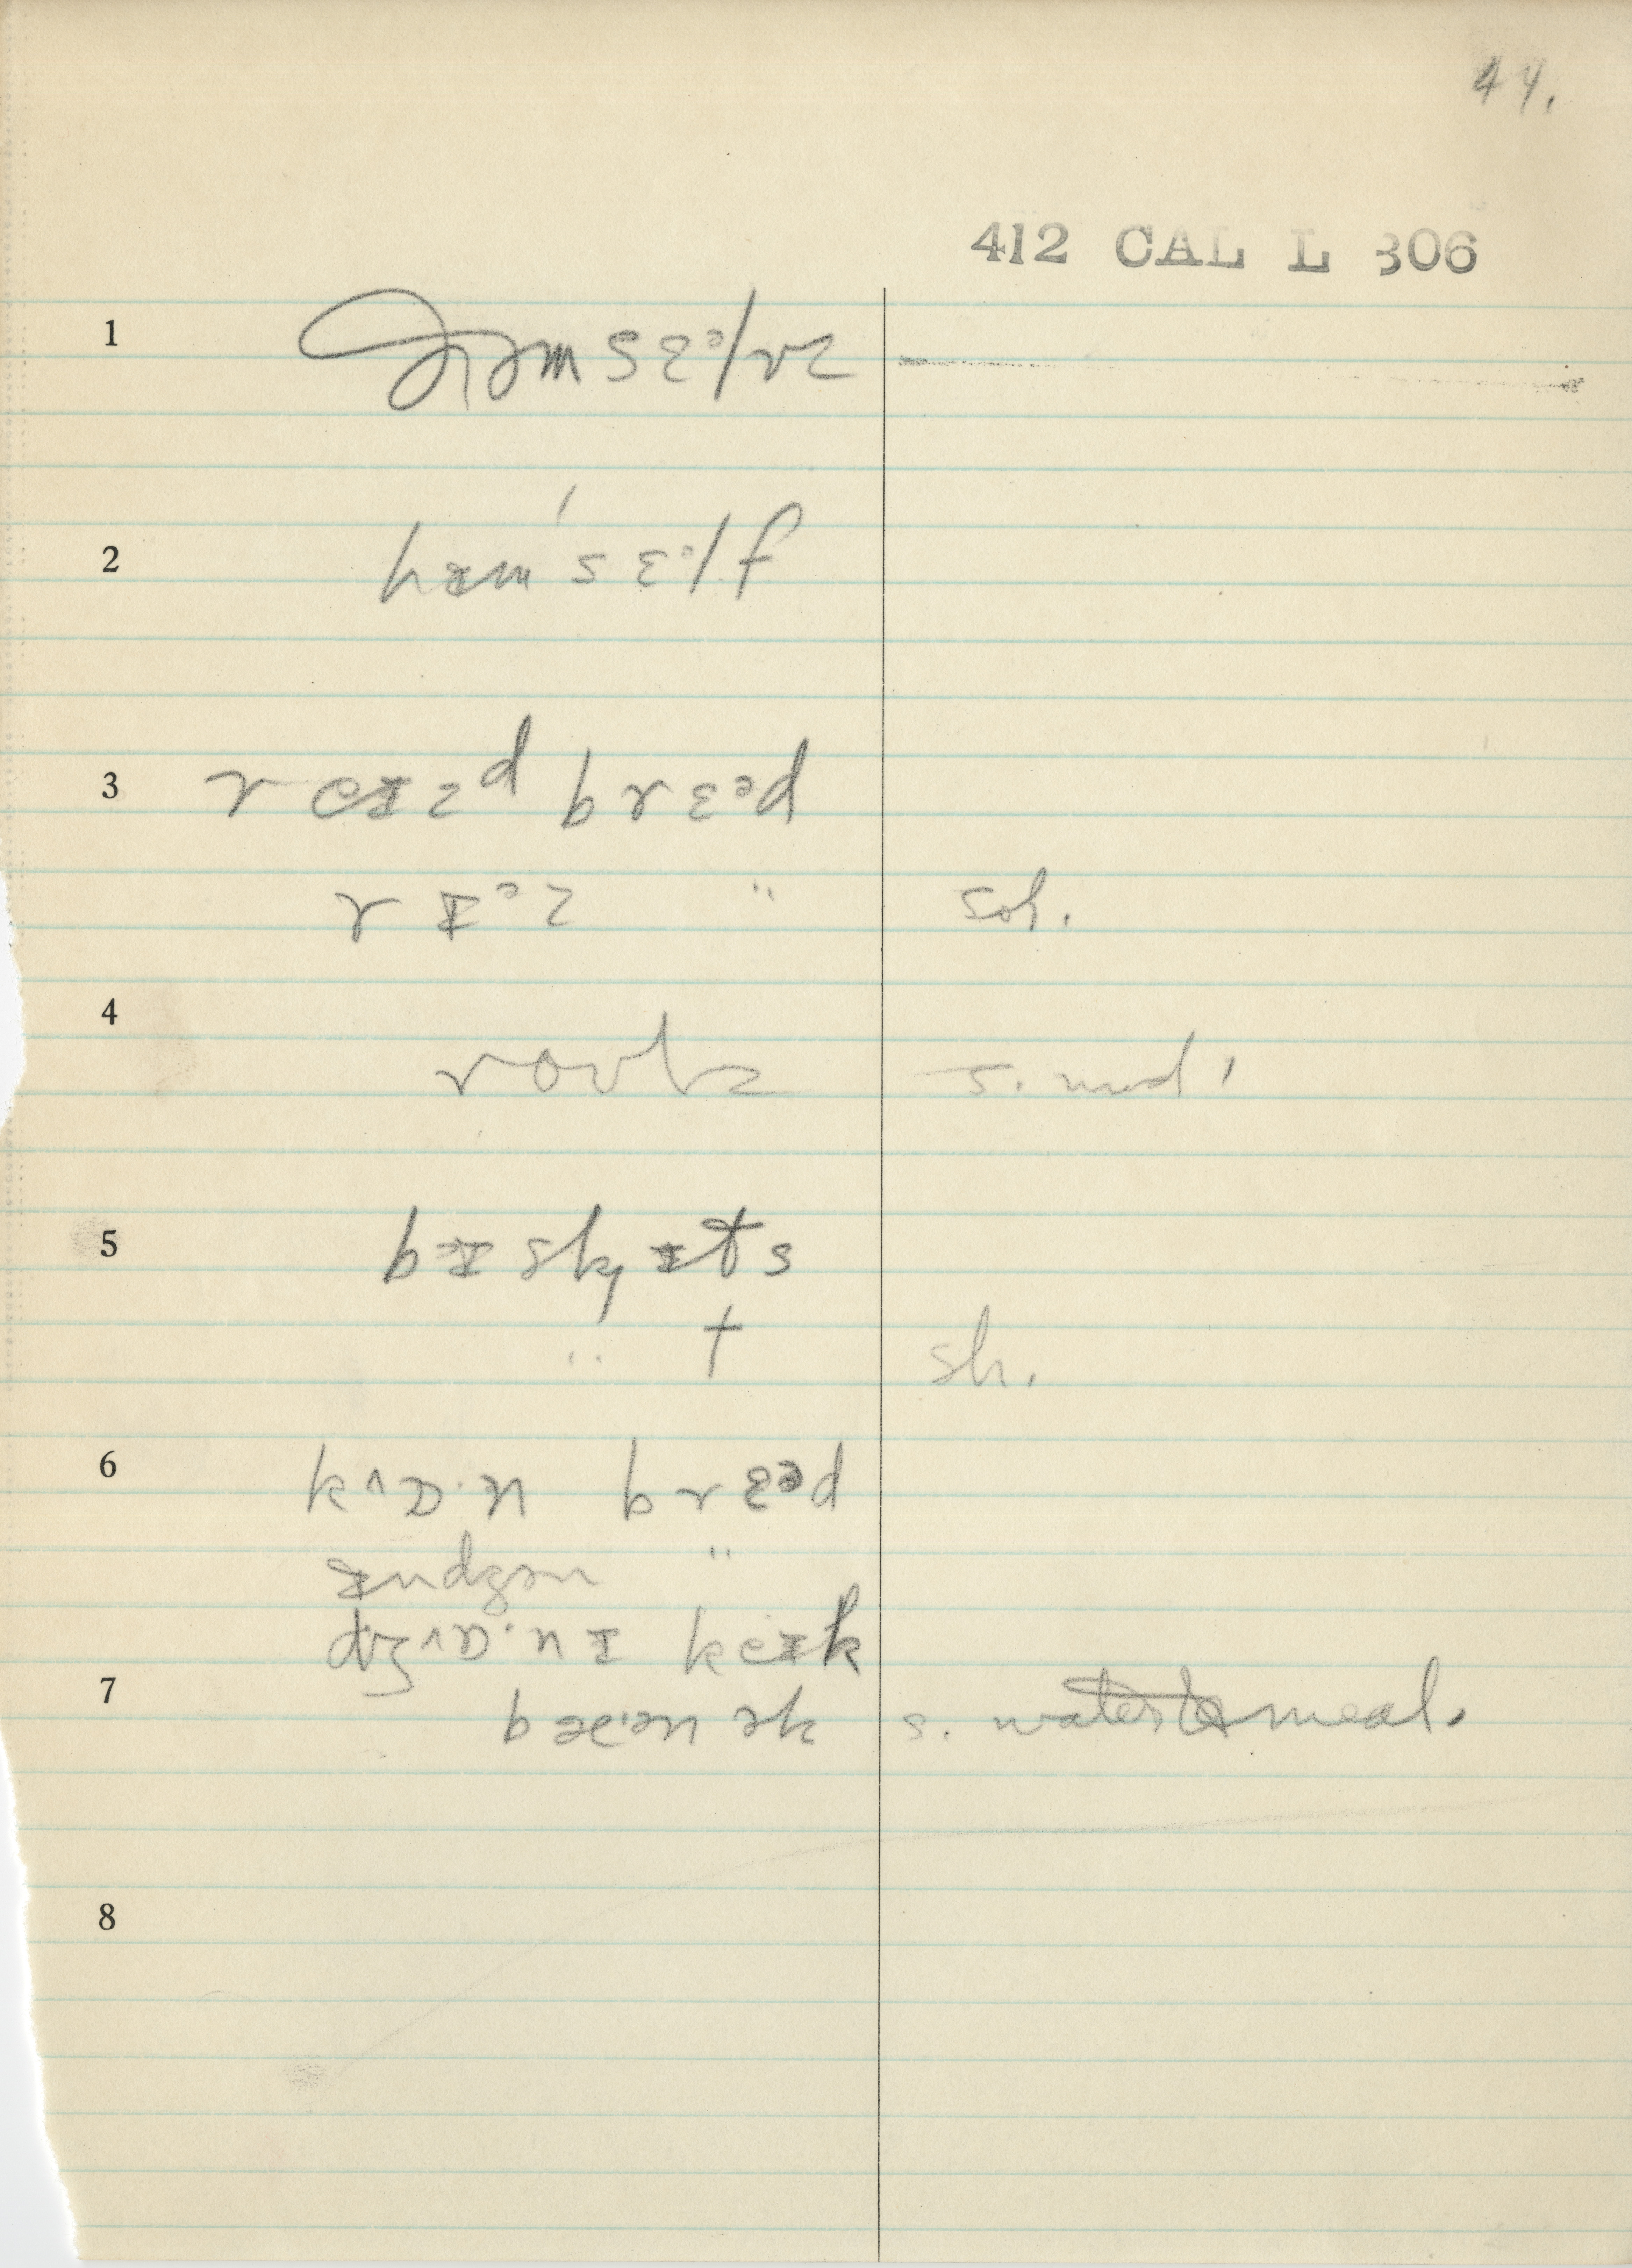 44.
412 CAL L 306
1 ðəmsɛᵊlvz
2 hɪm'sɛᵊlf
3 reɪzᵈ brɛᵊd
rɪᵊz " sob.
4 roʊlz s. mod.
5 bɪskɪts
" t sh.
6 kᶺɒ·n brɛᵊd
ɪndʒən "
dʒᶺɒ·nɪ keɪk
7 bæ·ənək s. water & meal.
8